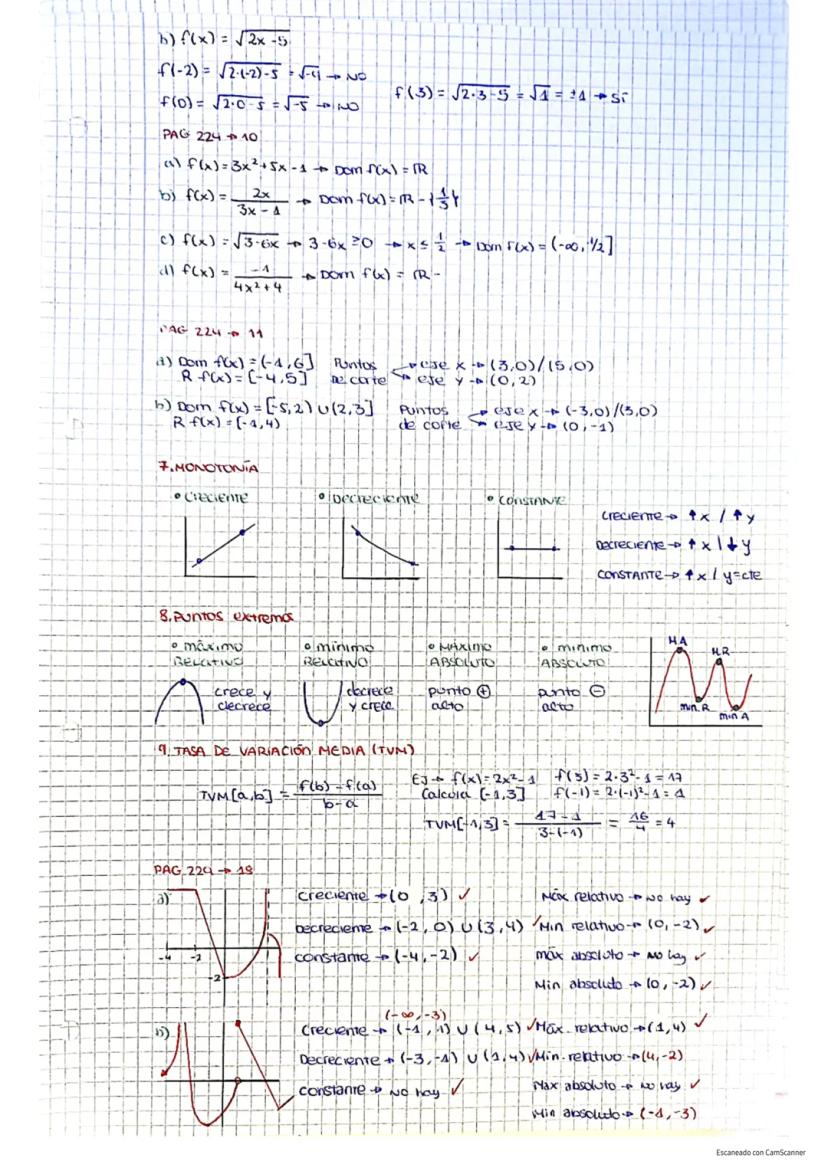 b) f(x) = √2x-5
f(-2) = √2·(-2)-5 = √-9 → NO
f(0) = √2·0-5 = √-5 → NO
f(3) = √2·3-5 = √1 = ±1 → SÍ
PAG 224 → 10
a) f(x) = 3x²+5x-1 → Dom f(x) = ℝ
b) f(x) = 2x / 3x-1 → Dom f(x) = ℝ - {1/3}
c) f(x) = √3-6x → 3-6x ≥0 → x ≤ 1/2 → Dom f(x) = (-∞, 1/2]
d) f(x) = -1 / 4x²+4 → Dom f(x) = ℝ -
PAG 224 → 11
a) Dom f(x) = (-1,6] Puntos de corte → eje x → (3,0)/(5,0)
R f(x) = [-4,5] → eje y → (0,2)
b) Dom f(x) = [-5,2) ∪ (2,3] Puntos de corte → eje x → (-3,0)/(3,0)
R f(x) = [-1,4) → eje y → (0,-1)
7. MONOTONÍA
• CRECIENTE • DECRECIENTE • CONSTANTE
CRECIENTE → ↑x / ↑y
DECRECIENTE → ↑x / ↓y
CONSTANTE → ↑x / y=cte
8. Puntos extremos
• máximo RELATIVO • mínimo RELATIVO • MÁXIMO ABSOLUTO • mínimo ABSOLUTO
crece y decrece
decrece y crece
punto ⊕ alto
punto ⊖ alto
M.A
M.R
min. R
min A
9. TASA DE VARIACIÓN MEDIA (TVM)
TVM[a,b] = f(b)-f(a) / b-a
EJ → f(x) = 2x²-1 f(3) = 2·3²-1 = 17
Calcula [-1,3] f(-1) = 2·(-1)²-1 = 1
TVM[-1,3] = 17-1 / 3-(-1) = 16/4 = 4
PAG 224 → 18
a)
-4 -2
-2
Creciente → (0,3) ✓ Máx relativo → No hay ✓
Decreciente → (-2,0) ∪ (3,4) ✓ Min relativo → (0,-2) ✓
constante → (-4,-2) ✓ máx absoluto → No hay ✓
Min absoluto → (0,-2) ✓
b)
(-∞,-3)
Creciente → (-1,1) ∪ (4,5) ✓ Máx. relativo → (1,4) ✓
Decreciente → (-3,-1) ∪ (1,4) ✓ Min. relativo → (4,-2)
constante → No hay ✓ Max absoluto → No hay ✓
Min absoluto → (-1,-3)
Escaneado con CamScanner